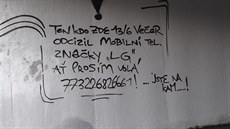 TEN KDO ZDE 13/6 VEČER
ODCIZIL MOBILNÍ TEL.
ZNAČKY „LG"
AŤ PROSÍM VOLÁ!
773226826661!
...JSTE NA
KAM....!